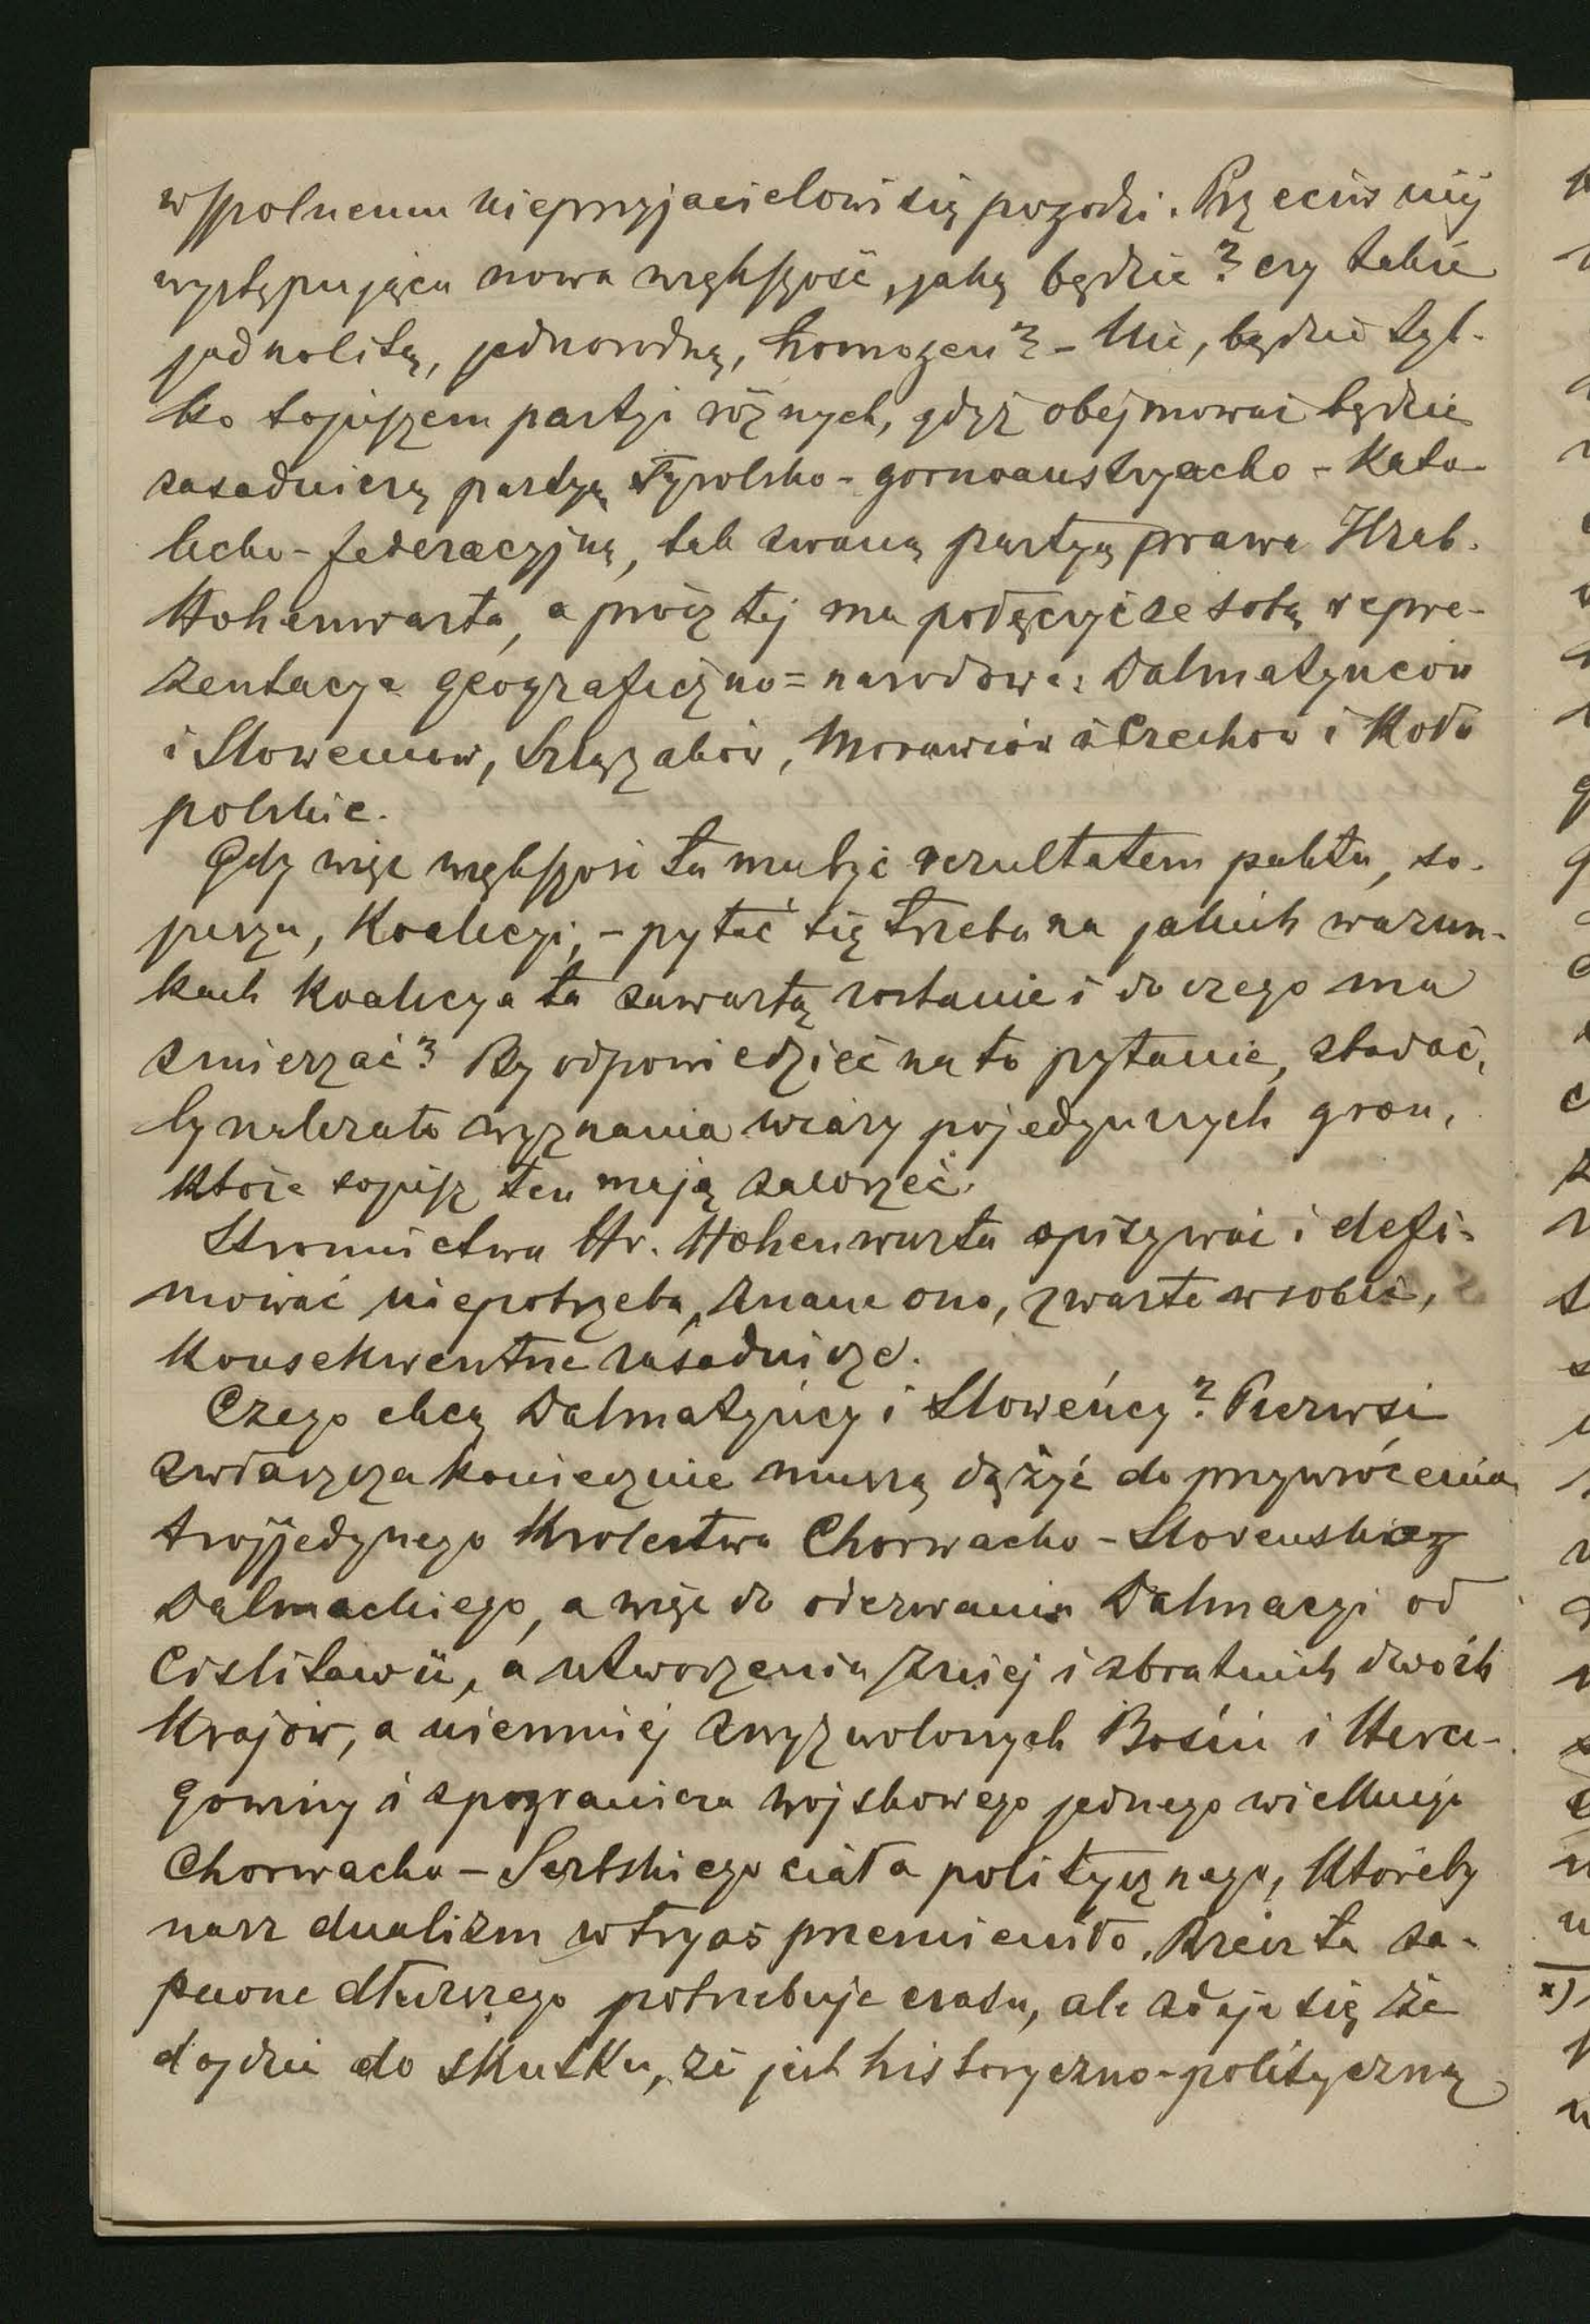 wspolnemu nieprzyjacielowi się pogodzi. Przeciw niij
występująca nowa większość, jaką będzie? czy takie
jednolitą, jednorodną, homogen? – Nie, będzie tyl-
ko sojuszem partji różnych, gdyż obejmować będzie
zasadniczą partyą tyrolsko-gornoaustryacko-Kato-
licko-federacyjną, tak zwaną partyą prawa Hrab.
Hohenwarta, a prócz tej ma połączyć ze sobą repre-
zentacye geograficzno=narodowe: Dalmatyńcow
i Sloweńcow, Szlązaków, Morawców i Czechow i Koło
polskie.
Gdy więc większość ta ma być rezultatem paktu, so-
juszu, Koalicyi, – pytać się trzeba na jakich warun-
kach Koalicya ta zawartą zostanie i do czego ma
zmierzać? By odpowiedzieć na to pytanie, zbadać,
by należało wyznania wiary pojedynczych gron,
które sojusz ten mają zawrzeć.
Stronnictwa Hr. Hohenwarta opisywać i defi-
niować niepotrzeba, znane ono, zwarte w sobie,
Konsekwentne zasadnicze.
Czego chcą Dalmatyńcy i Sloweńcy? Pierwsi
zwłaszcza koniecznie muszą dążyć do przywrócenia
trojjedynego Krolestwa Chorwacko-Slovensko
Dalmackiego, a więc do oderwania Dalmacyi od
Cislitawii, a utworzenia z niej i zbratnich dwóch
Krajów, a niemniej z wyzwolonych Bośni i Herce-
gowiny i z pogranicza wojskowego jednego wielkiego
Chorwacko-Serbskiego ciała politycznego, Któreby
nasz dualizm w tryas przemieniło. Rzecz ta za-
pewne dłuższego potrzebuje czasu, ale zdaje się że
dojdzie do skutku, że jest historyczno-polityczną